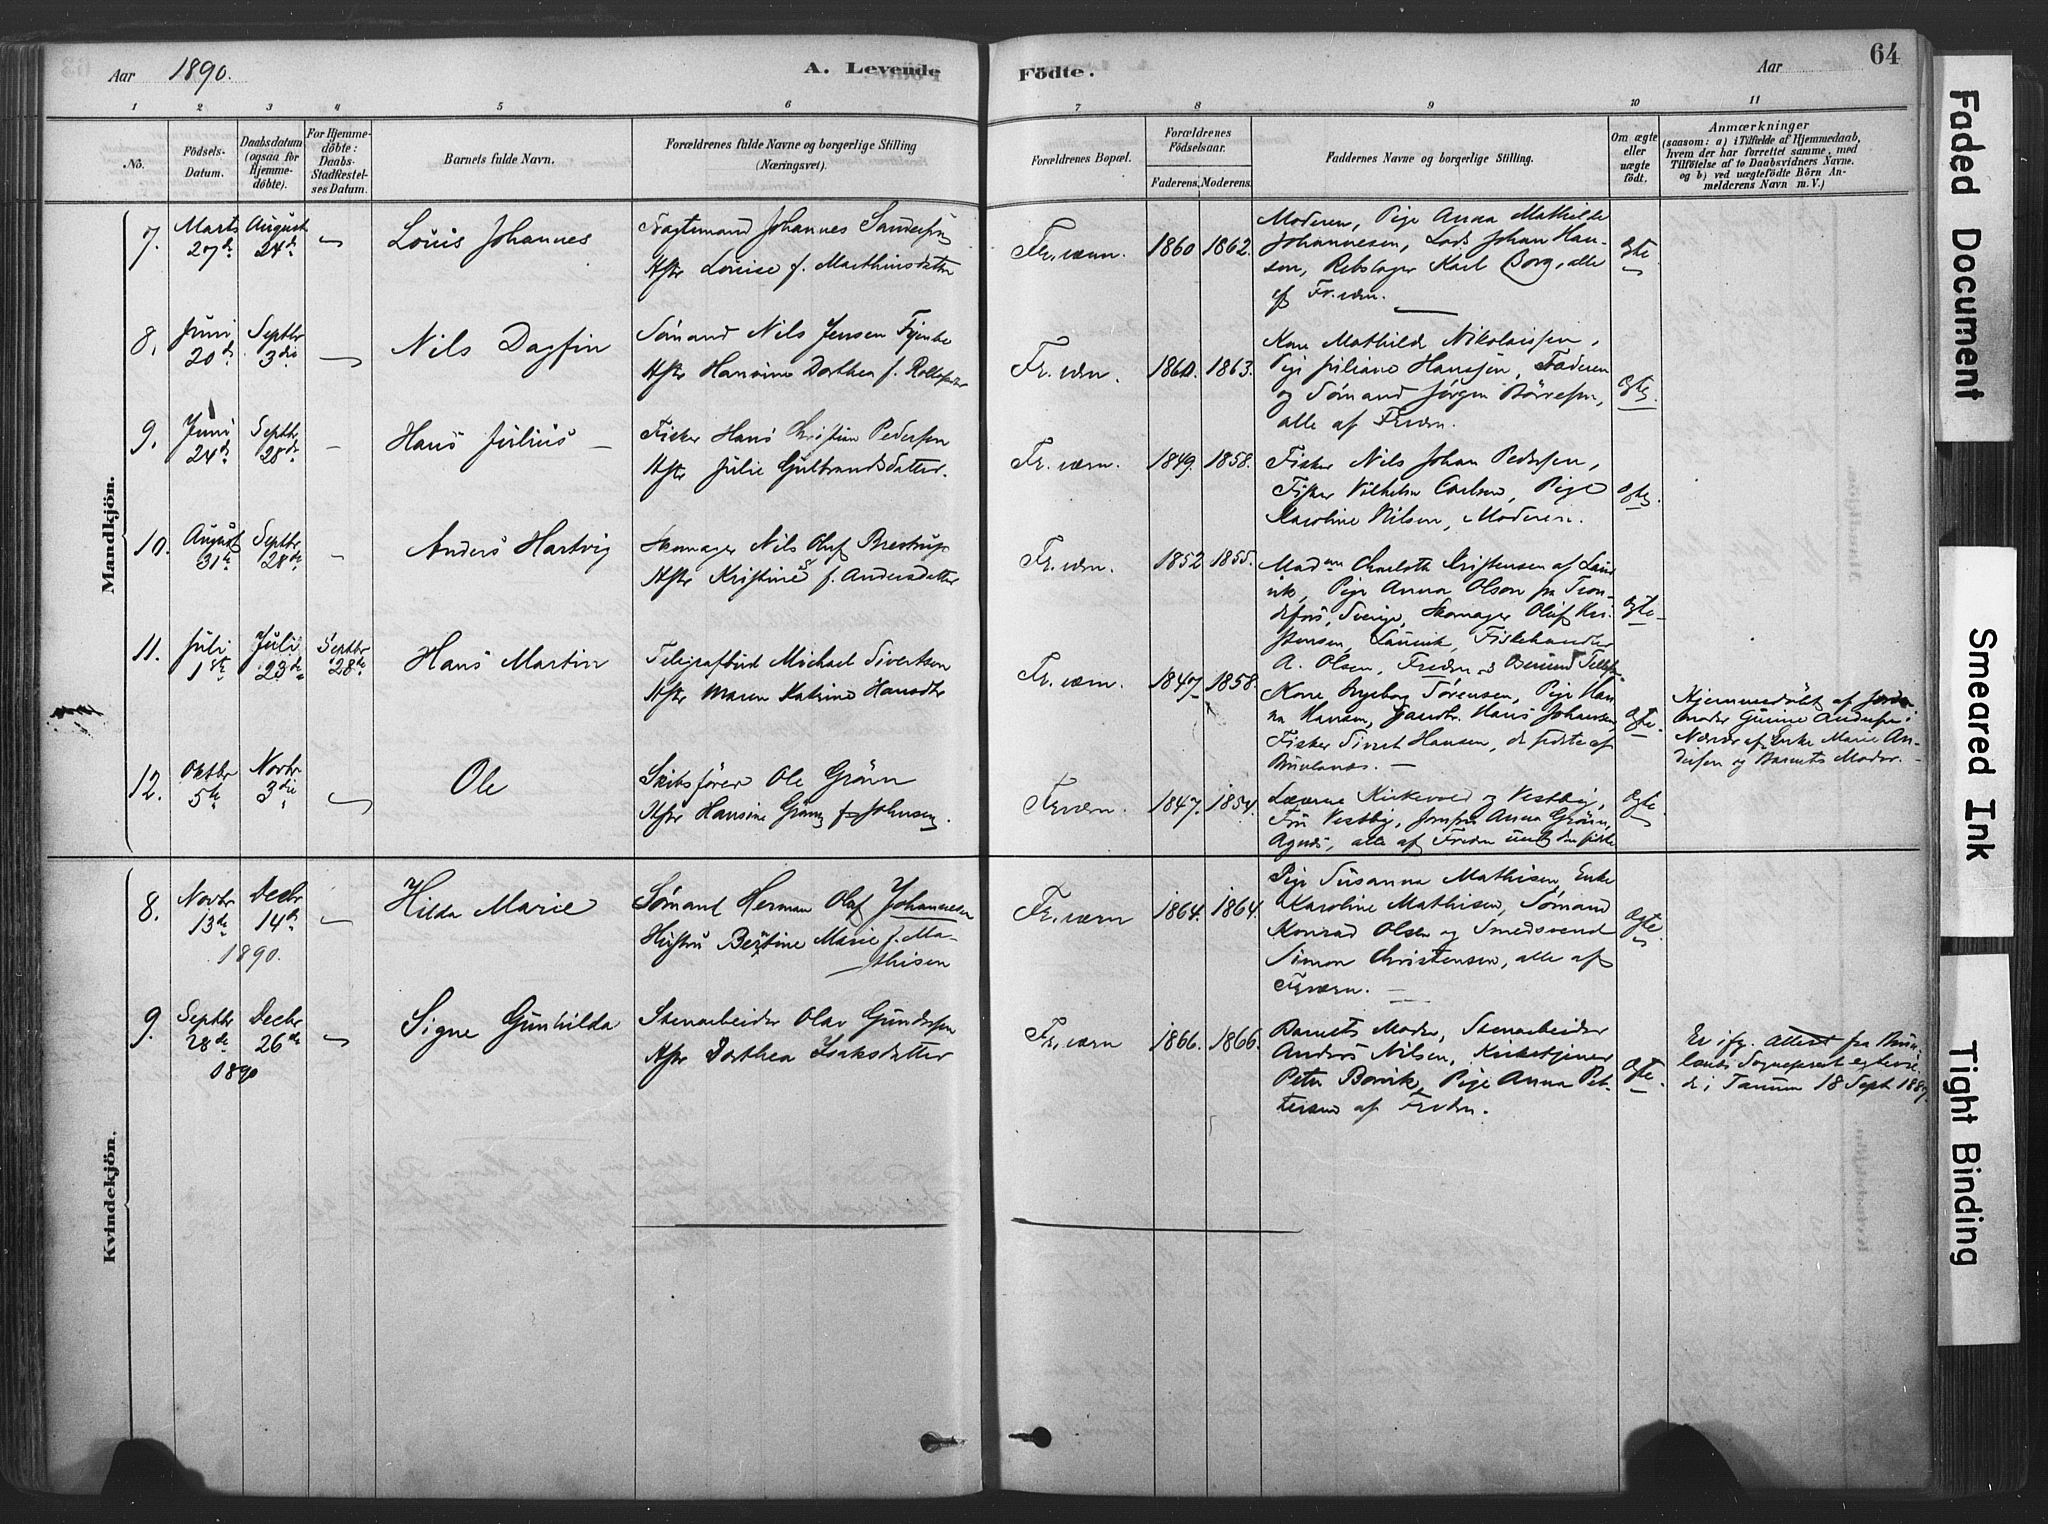 Aar 1890.
A. Levende
Födte.
Aar
64
1 2 3 4 5 6 7 8 9 10 11
No.
Födsels-
Datum.
Daabsdatum
(ogsaa for
Hjemme-
döbte).
For Hjemme-
döbte:
Daabs-
Stadfæstel-
ses Datum.
Barnets fulde Navn.
Forældrenes fulde Navne og borgerlige Stilling
(Næringsvei).
Forældrenes Bopæl.
Forældrenes
Födselsaar.
Faderens. Moderens.
Faddernes Navne og borgerlige Stilling.
Om ægte
eller
uægte
födt.
Anmærkninger
(saasom: a) i Tilfælde af Hjemmedaab,
hvem der har forrettet samme, med
Tilföielse af to Daabsvidners Navne.
og b) ved uægtefödte Börn An-
melderens Navn m. V.)
Mandkjön.
7.
Marts
27de
August
24de
Louis Johannes
Johannes
Hstr Louise f. Marthinsdatter
Fr.værn.
1860 1862.
Moderen, Pige Anna Mathilde
Johannesen, Lods Johan Han-
sen, Rebslager Karl Borg, alle
af Fr.værn.
Egte
8.
Juni
20de
Septbr
3die
Nils Dagfin
Sømand Nils Jensen
Hstr Hansine Dorthea f.
Fr.værn.
1860. 1863.
Kone Mathilde Nikolaissen,
Pige Juliane Hanssen, Faderen
og Sømand Jørgen Børresen,
alle af Frværn.
Egte
9.
Juni
24de
Septbr
28de
Hans Julius
Fisker Hans Kristian Pedersen
Hstr Julie Gulbrandsdatter.
Fr.værn.
1849. 1858.
Fisker Nils Johan Pedersen,
Fisker Vilhelm Carlsen, Pige
Karoline Nilsen, Moderen.
Egte
10.
August
31te
Septbr
28de
Anders Hartvig
Skomager Nils Oluf Brestrup
Hstr Kristine f. Andersdatter
Fr.værn.
1852 1855.
Madam Charlotte Cristensen af Laur-
vik, Pige Anna Olson fra
Sverige, Skomager Oluf Kri-
stensen, Laurvik, Fiskehandler
A. Olsen, Frværn
Egte
11.
Juli
1ste
Juli
23de
Septbr
28de
Hans Martin
Telegrafbud Michael Sivertsen
Hstr Maren Katrine Hansdtr
Fr.værn.
1847 1858.
Kone Ingeborg Sørensen, Pige Han-
na Hansen, Hans Johansen,
Fisker Sivert Hansen, de sidste af
Brunlanæs.
Egte
Hjemmedøbt af Jorde-
moder Gurine Andersen i
Nærvær af Enke Marie An-
dersen og Barnets Moder.
12.
Oktbr
5te
Novbr
3die
Ole
Skibsfører Ole Grønn
Hstr Hansine Grønn f. Johnsen.
Frværn.
1847. 1854.
Lærerne Kirkevold og Vestby,
Fru Vestby, Jomfru Anna Grønn,
alle af Frværn undt. den sidste
Egte
Kvindekjön.
8.
Novbr
13de
Decbr
14de
1890.
Hilda Marie
Sømand Herman Olaf Johannesen
Hustru Bertine Marie f. Ma-
thisen
Fr.værn
1864. 1864.
Pige Susanna Mathisen, Enke
Karoline Mathisen, Sømand
Konrad Olsen og Smedsvend
Simon Christensen, alle af
Frværn.
Egte
9.
Septbr
28de
Decbr
26de
1890
Signe Gunhilda
Stenarbeider Olav Gundersen
Hstr Dorthea Isaksdatter
Fr.værn
1866. 1866.
Barnets Moder, Stenarbeider
Anders Nilsen, Kirketjener
Peter Borvik, Pige Anna Pet-
tersen af Frværn.
Egte.
Er ifg. Attest fra Brun-
lanes Sognepræst egtevie-
de i Tanum 18 Sept 1889.
Faded Document
Smeared Ink
Tight Binding